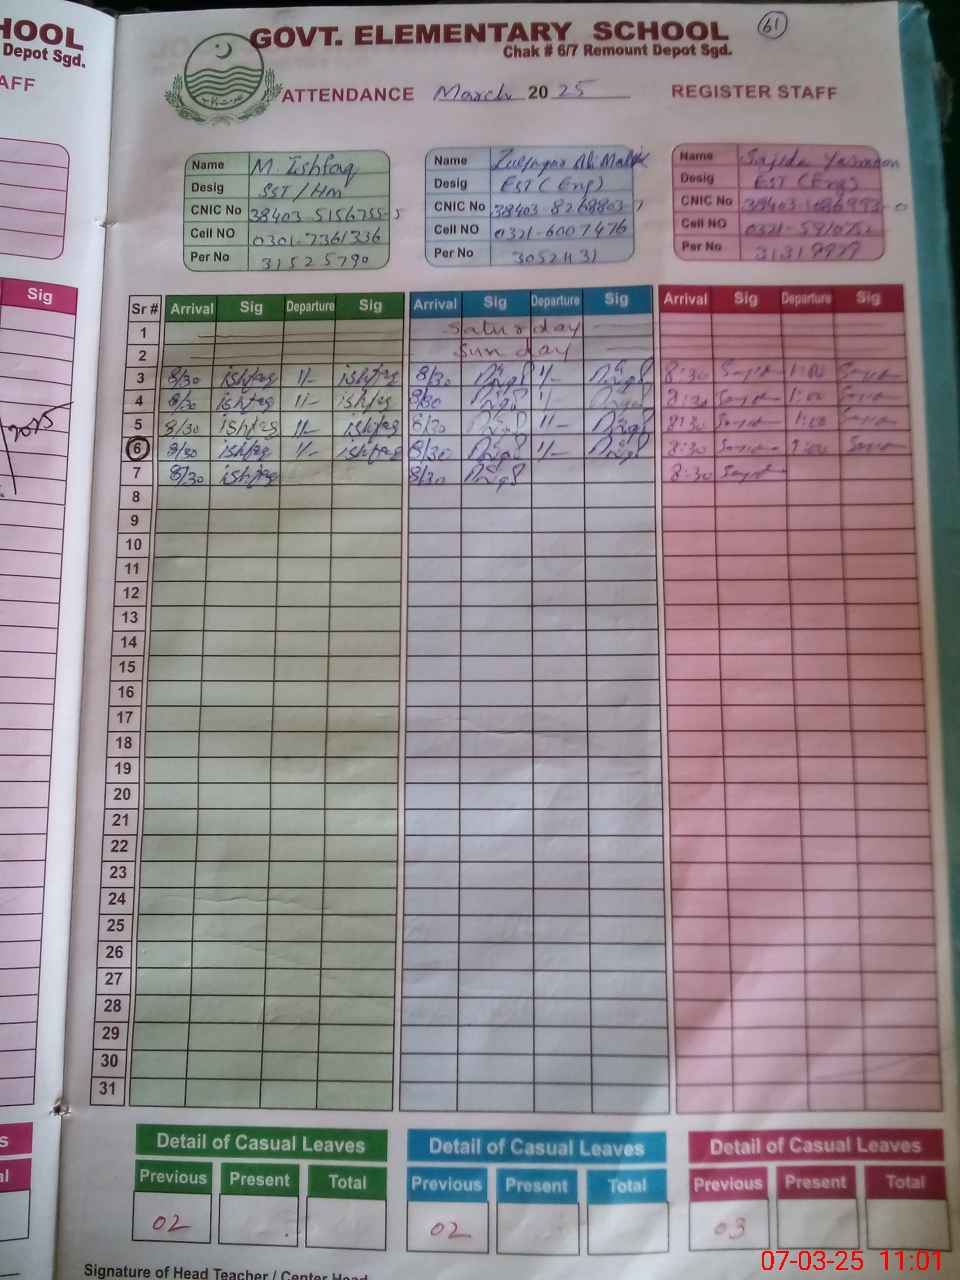 HOOL
Depot Sgd.
AFF
Sig
2025
GOVT. ELEMENTARY SCHOOL 61
Chak # 6/7 Remount Depot Sgd.
ATTENDANCE March 2025 REGISTER STAFF
Name M. Ishfaq
Desig SST/Hm
CNIC No 38403-5156755-5
Cell NO 0301-7361336
Per No 31525790
Name Zulfiqar Ali Malik
Desig EST (Eng)
CNIC No 38403-8268803-7
Cell NO 0321-6007476
Per No 30521131
Name Sajida Yasmeen
Desig EST (Eng)
CNIC No 38403-1086993-0
Cell NO 0321-5910752
Per No
Sr # Arrival Sig Departure Sig Arrival Sig Departure Sig Arrival Sig Departure Sig
1 Saturday
2 Sunday
3 8/30 ishfaq 1/- ishfaq 8/30 1/- 8:30 1:00
4 8/30 ishfaq 1/- ishfaq 8/30 1/- 8:30 1:00
5 8/30 ishfaq 1/- ishfaq 8/30 1/- 8:30 1:00
6 8/30 ishfaq 1/- ishfaq 8/30 1/- 8:30 1:00
7 8/30 ishfaq 8/30 8:30
8
9
10
11
12
13
14
15
16
17
18
19
20
21
22
23
24
25
26
27
28
29
30
31
Detail of Casual Leaves Detail of Casual Leaves Detail of Casual Leaves
Previous Present Total Previous Present Total Previous Present Total
02 02 03
Signature of Head Teacher / Center Head
07-03-25 11:01